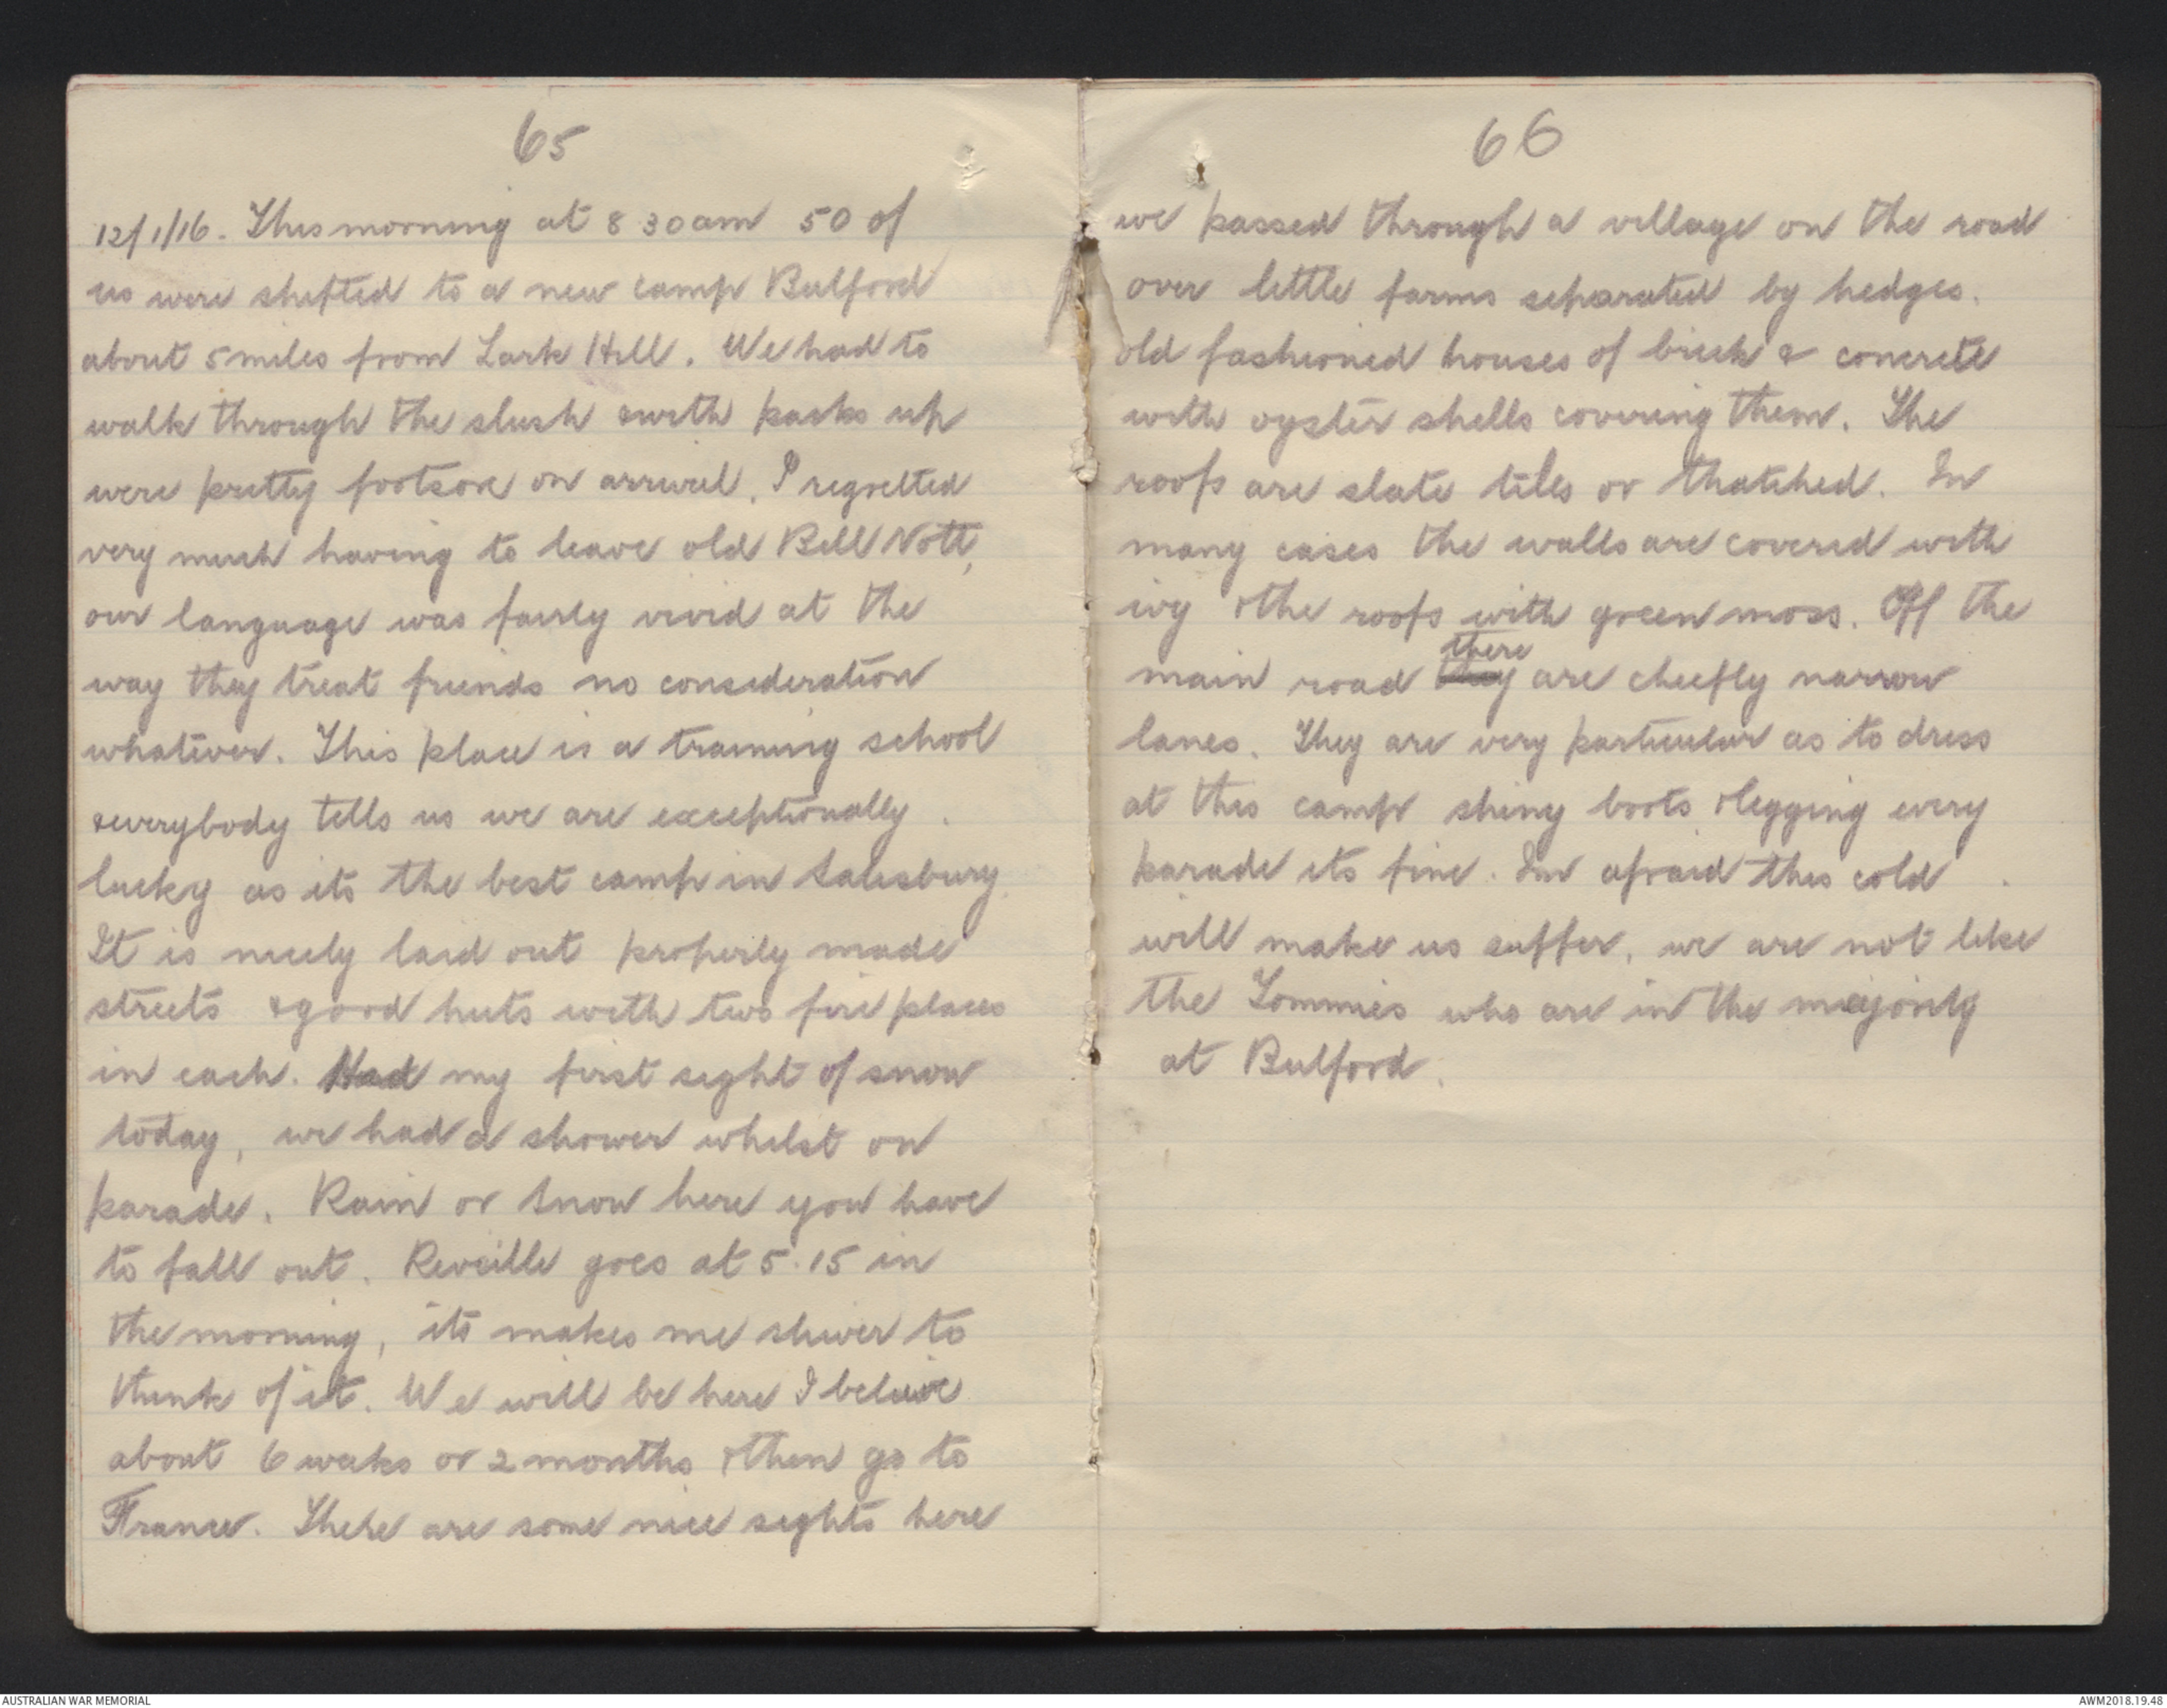 65
12/1/16. This morning at 8 30am 50 of
us were shifted to a new camp Bulford
about 5 miles from Lark Hill. We had to
walk through the slush & with packs up
were pretty footsore on arrival. I regretted
very much having to leave old Bill Nott,
our language was fairly vivid at the
way they treat friends no consideration
whatever. This place is a training school
& everybody tells us we are exceptionally
lucky as its the best camp in Salisbury.
It is nicely laid out properly made
streets & good huts with two fire places
in each. Had my first sight of snow
today, we had a shower whilst on
parade. Rain or Snow here you have
to fall out. Reveille goes at 5.15 in
the morning, its makes me shiver to
think of it. We will be here I believe
about 6 weeks or 2 months & then go to
France. There are some nice sights here
66
we passed through a village on the road
over little farms separated by hedges.
old fashioned houses of brick & concrete
with oyster shells covering them. The
roofs are slate tiles or thatched. In
many cases the walls are covered with
ivy & the roofs with green moss. Off the
there
main road they are chiefly narrow
lanes. They are very particular as to dress
at this camp shiny boots & legging every
parade its fine. Im afraid this cold
will make us suffer, we are not like
the Tommies who are in the majority
at Bulford.
AUSTRALIAN WAR MEMORIAL
AWM2018.19.48